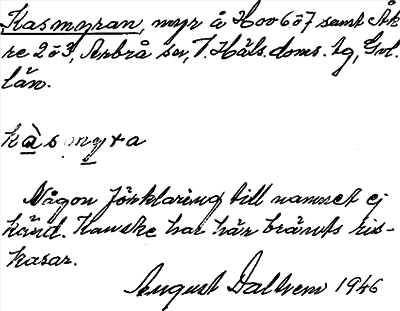 Kasmyran, myr å Hov 6 o 7 samt Åk
re 2 o 3, Arbrå sn, V. Häls. doms. lg, Gvl.
län.
kàsmyra
Någon förklaring till namnet ej
känd. Kanske har här bränts ris-
kasar.
August Dalhem 1946